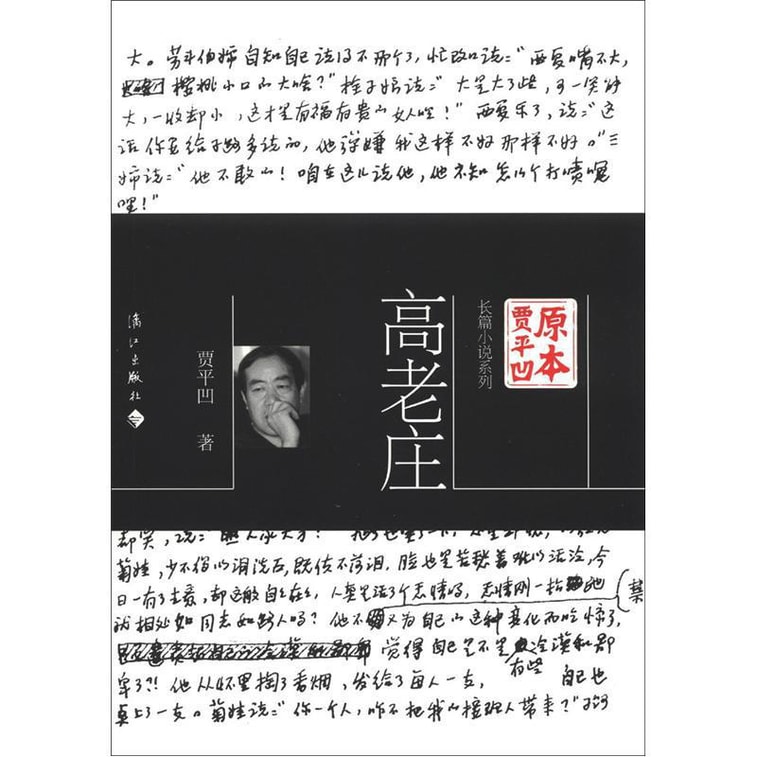 大。劳斗伯婶自知自己说得不那个了，忙改口说："西夏嘴不大，
樱桃小口山大啥？"栓子娘说："大是大了些，可一笑就
大，一收却小，这才是有福有贵的女人哩！"西夏乐了，说："这
话你要给子路多说的，他弹嫌我这样不好那样不好。"三
婶说："他不敢的！咱在这儿说他，他不知怎么个打喷嚏
哩！"
高老庄
长篇小说系列
原本
贾平凹
贾平凹 著
漓江出版社
菊娃，少不得的泪洗后，既使不落泪，脸也是苦愁着
日一有了主意，却这般自在，人要是活了个
说相处如同志如路人吗？他不又为自己的这种变化而吃惊了，
觉得自己是不是冷漠和
有些
牢了？！他从怀里掏了香烟，发给了每人一支，自己也
桌上了一支。菊娃说："你一个人，咋不把我的经理人带来？"